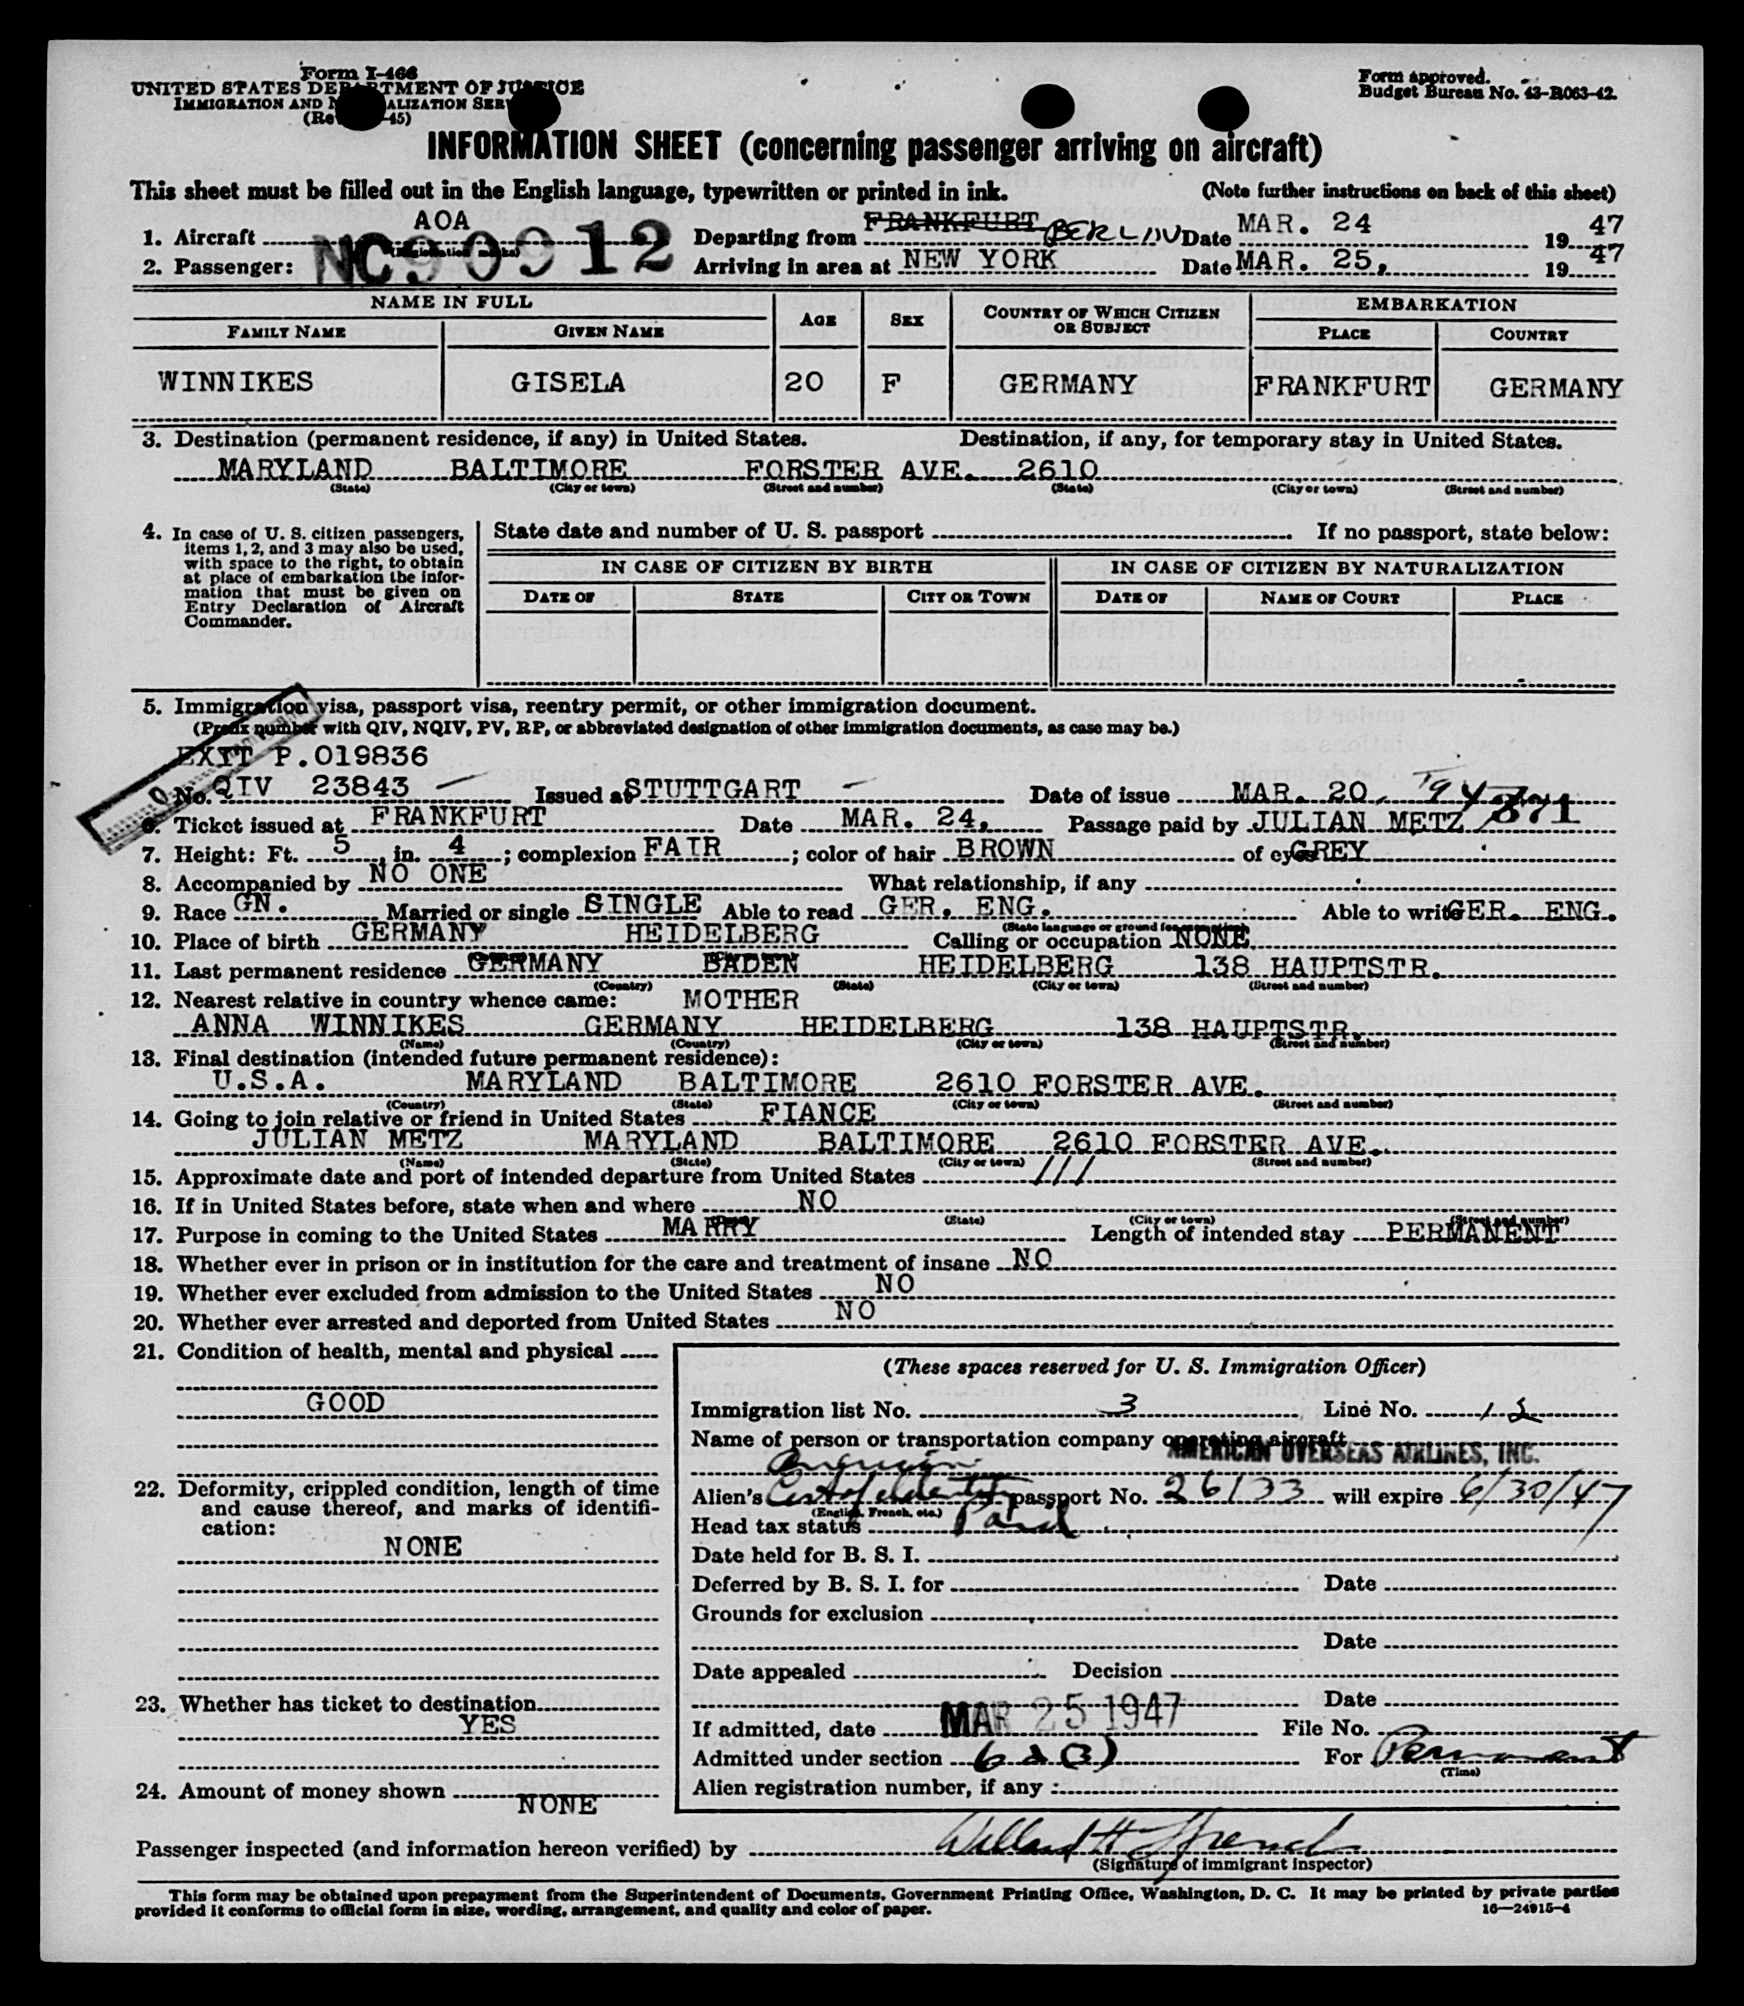 Form I-466
UNITED STATES DEPARTMENT OF JUSTICE
IMMIGRATION AND NATURALIZATION SERVICE
Form approved.
Budget Bureau No. 43-R063-42.
INFORMATION SHEET (concerning passenger arriving on aircraft)
This sheet must be filled out in the English language, typewritten or printed in ink. (Note further instructions on back of this sheet)
1. Aircraft AOA NC90912 (Registration marks) Departing from FRANKFURT BERLIN Date MAR. 24 1947
2. Passenger: Arriving in area at NEW YORK Date MAR. 25, 1947
NAME IN FULL AGE SEX COUNTRY OF WHICH CITIZEN OR SUBJECT EMBARKATION
FAMILY NAME GIVEN NAME PLACE COUNTRY
WINNIKES GISELA 20 F GERMANY FRANKFURT GERMANY
3. Destination (permanent residence, if any) in United States. Destination, if any, for temporary stay in United States.
MARYLAND BALTIMORE FORSTER AVE. 2610
(State) (City or town) (Street and number) (State) (City or town) (Street and number)
4. In case of U. S. citizen passengers, items 1, 2, and 3 may also be used, with space to the right, to obtain at place of embarkation the information that must be given on Entry Declaration of Aircraft Commander.
State date and number of U. S. passport If no passport, state below:
IN CASE OF CITIZEN BY BIRTH IN CASE OF CITIZEN BY NATURALIZATION
DATE OF STATE CITY OR TOWN DATE OF NAME OF COURT PLACE
5. Immigration visa, passport visa, reentry permit, or other immigration document.
(Prefix number with QIV, NQIV, PV, RP, or abbreviated designation of other immigration documents, as case may be.)
EXIT P.019836
No. QIV 23843 Issued at STUTTGART Date of issue MAR. 20, 1947
6. Ticket issued at FRANKFURT Date MAR. 24, Passage paid by JULIAN METZ 871
7. Height: Ft. 5, in. 4; complexion FAIR; color of hair BROWN of eyes GREY
8. Accompanied by NO ONE What relationship, if any
9. Race GN. Married or single SINGLE Able to read GER. ENG. Able to write GER. ENG.
(State language or ground for exemption)
10. Place of birth GERMANY HEIDELBERG Calling or occupation NONE
11. Last permanent residence GERMANY BADEN HEIDELBERG 138 HAUPTSTR.
(Country) (State) (City or town) (Street and number)
12. Nearest relative in country whence came: MOTHER
ANNA WINNIKES GERMANY HEIDELBERG 138 HAUPTSTR.
(Name) (Country) (City or town) (Street and number)
13. Final destination (intended future permanent residence):
U.S.A. MARYLAND BALTIMORE 2610 FORSTER AVE.
(Country) (State) (City or town) (Street and number)
14. Going to join relative or friend in United States FIANCE
JULIAN METZ MARYLAND BALTIMORE 2610 FORSTER AVE.
(Name) (State) (City or town) (Street and number)
15. Approximate date and port of intended departure from United States ///
16. If in United States before, state when and where NO
(State) (City or town) (Street and number)
17. Purpose in coming to the United States MARRY Length of intended stay PERMANENT
18. Whether ever in prison or in institution for the care and treatment of insane NO
19. Whether ever excluded from admission to the United States NO
20. Whether ever arrested and deported from United States NO
21. Condition of health, mental and physical
GOOD
22. Deformity, crippled condition, length of time and cause thereof, and marks of identification:
NONE
23. Whether has ticket to destination
YES
24. Amount of money shown NONE
(These spaces reserved for U. S. Immigration Officer)
Immigration list No. 3 Line No. 12
Name of person or transportation company operating aircraft
AMERICAN OVERSEAS AIRLINES, INC.
Alien's Cert of identity passport No. 26133 will expire 6/30/47
(English, French, etc.)
Head tax status Paid
Date held for B. S. I.
Deferred by B. S. I. for Date
Grounds for exclusion
Date
Date appealed Decision
Date
If admitted, date MAR 25 1947 File No.
Admitted under section 6a(3) For Permanent
(Time)
Alien registration number, if any :
Passenger inspected (and information hereon verified) by Willard H French
(Signature of immigrant inspector)
This form may be obtained upon prepayment from the Superintendent of Documents, Government Printing Office, Washington, D. C. It may be printed by private parties
provided it conforms to official form in size, wording, arrangement, and quality and color of paper. 16—24915-4